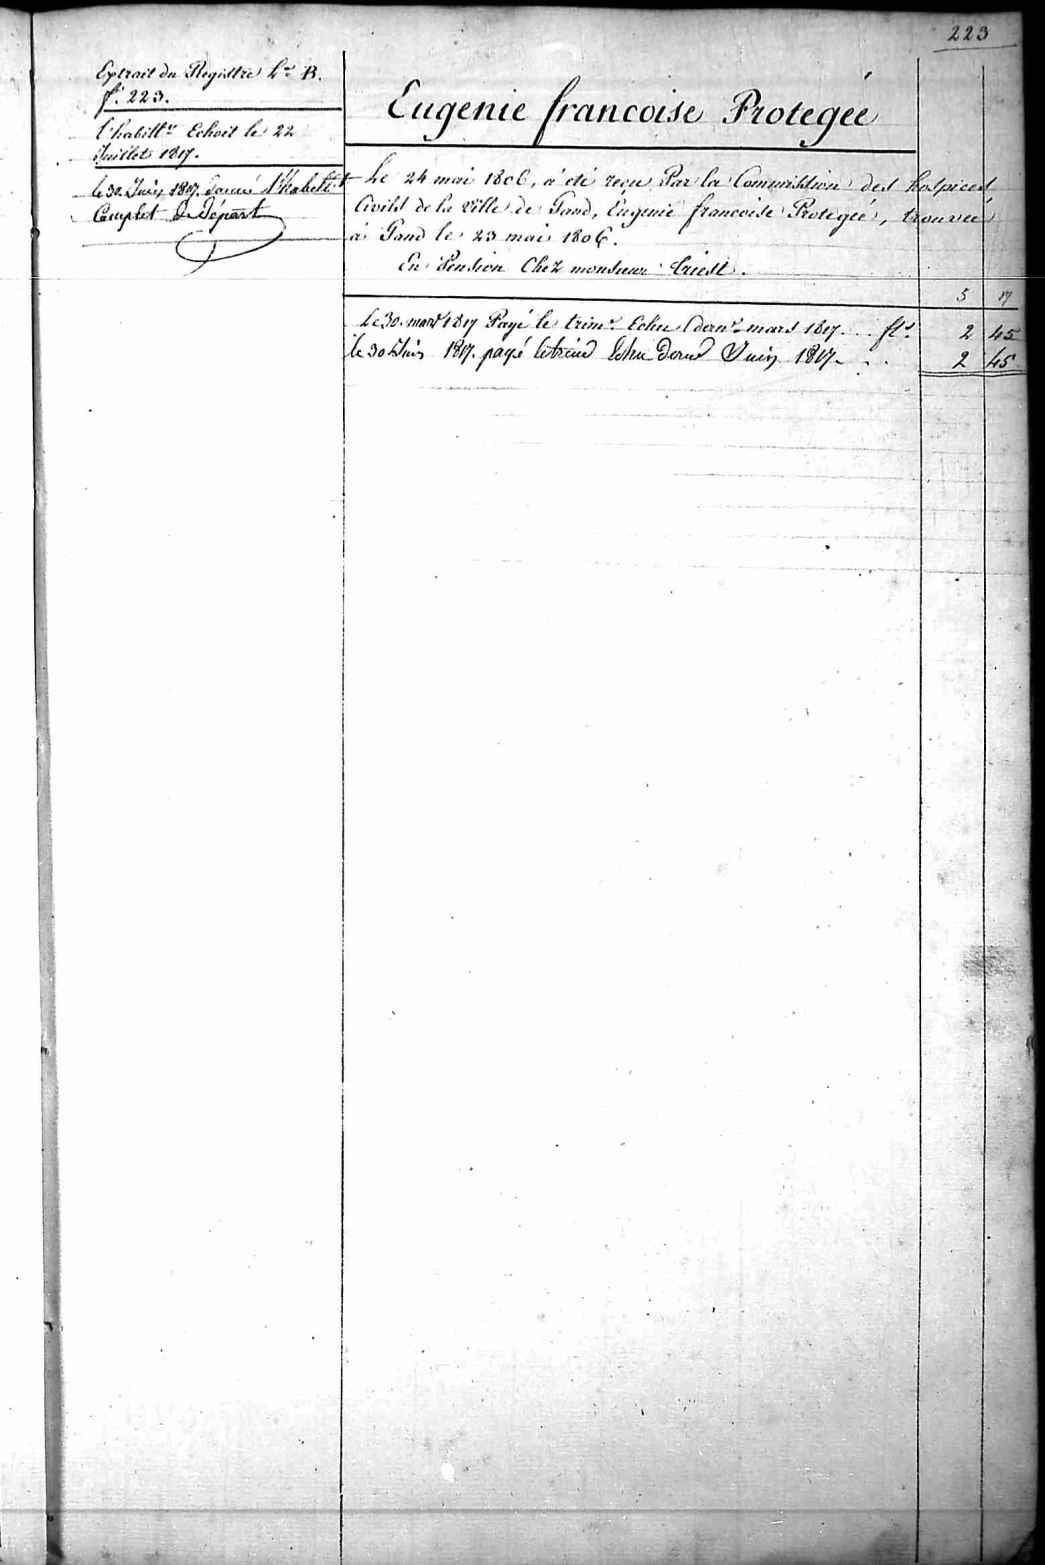 223
Extrait du Registre Lre B.
f°. 223.
L'habillt. Echoit le 22
Juillet 1817.
le 30. Juin 1817. donné l'habillt
Complet de Départ
Eugenie francoise Protegée
Le 24 mai 1806, à été reçu Par la Commission des hospices
Civils de la Ville de Gand, Eugenie francoise Protegée, trouvée
à Gand le 23 mai 1806.
En Pension Chez monsieur Criest.
5 17
Le 30. mars 1817 Payé le trimre. Echu dernr. mars 1817. . . fls. 2 45
le 30 Juin 1817. payé le trim Echu dernr Juin 1817. . . 2 45